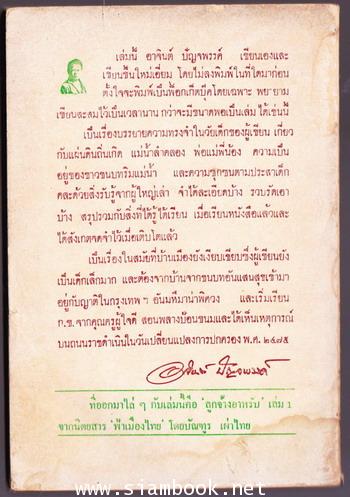 เล่มนี้ อาจินต์ ปัญจพรรค์ เขียนเองและ
เขียนขึ้นใหม่เอี่ยม โดยไม่ลงพิมพ์ในที่ใดมาก่อน
ตั้งใจจะพิมพ์เป็นพ็อกเก็ตบุ๊คโดยเฉพาะ พยายาม
เขียนสะสมไว้เป็นเวลานาน กว่าจะมีขนาดพอเป็นเล่ม ได้เช่นนี้
เป็นเรื่องบรรยายความทรงจำในวัยเด็กของผู้เขียน เกี่ยว
กับแผ่นดินถิ่นเกิด แม่น้ำลำคลอง พ่อแม่พี่น้อง ความเป็น
อยู่ของชาวชนบทริมแม่น้ำ และความซุกซนตามประสาเด็ก
คละด้วยสิ่งรับรู้จากผู้ใหญ่เล่า จำได้ละเอียดบ้าง รวบรัดเอา
บ้าง สรุปรวมกับสิ่งที่ได้รู้ได้เรียน เมื่อเรียนหนังสือแล้วและ
ได้สังเกตจดจำไว้เมื่อเติบโตแล้ว
เป็นเรื่องในสมัยที่บ้านเมืองยังเงียบเชียบซึ่งผู้เขียนยัง
เป็นเด็กเล็กมาก และต้องจากบ้านจากชนบทอันแสนสุขเข้ามา
อยู่กับญาติในกรุงเทพ ฯ อันมหึมาน่าพิศวง และเริ่มเรียน
ก.ข. จากคุณครูผู้ใจดี สอนพลางป้อนขนมและได้เห็นเหตุการณ์
บนถนนราชดำเนินในวันเปลี่ยนแปลงการปกครอง พ.ศ. ๒๔๗๕
อาจินต์ ปัญจพรรค์
ที่ออกมาไล่ ๆ กับเล่มนี้คือ 'ลูกจ้างอาหรับ' เล่ม 1
จากนิตยสาร 'ฟ้าเมืองไทย' โดยบัณฑูร เผ่าไทย
www.siambook.net